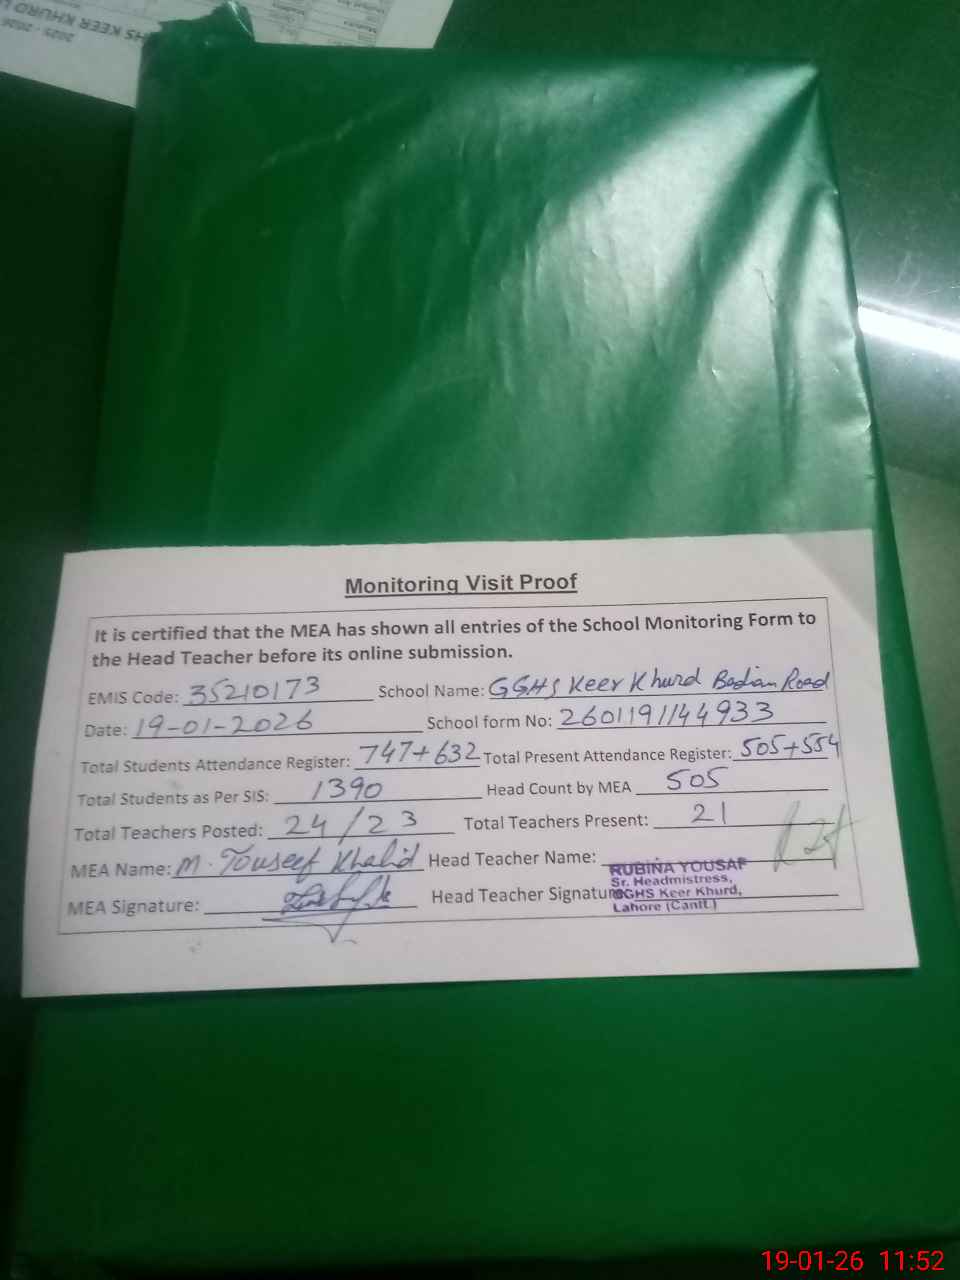 2025 - 2026
HS KEER KHURD L
Monitoring Visit Proof
It is certified that the MEA has shown all entries of the School Monitoring Form to
the Head Teacher before its online submission.
EMIS Code: 35210173 School Name: GGHS Keer Khurd Badian Road
Date: 19-01-2026 School form No: 2601191144933
Total Students Attendance Register: 747+632 Total Present Attendance Register: 505+554
Total Students as Per SIS: 1390 Head Count by MEA 505
Total Teachers Posted: 24/23 Total Teachers Present: 21
MEA Name: M. Touseef Khalid Head Teacher Name: RUBINA YOUSAF
Sr. Headmistress,
MEA Signature: Head Teacher Signature GGHS Keer Khurd,
Lahore (Cantt.)
19-01-26 11:52